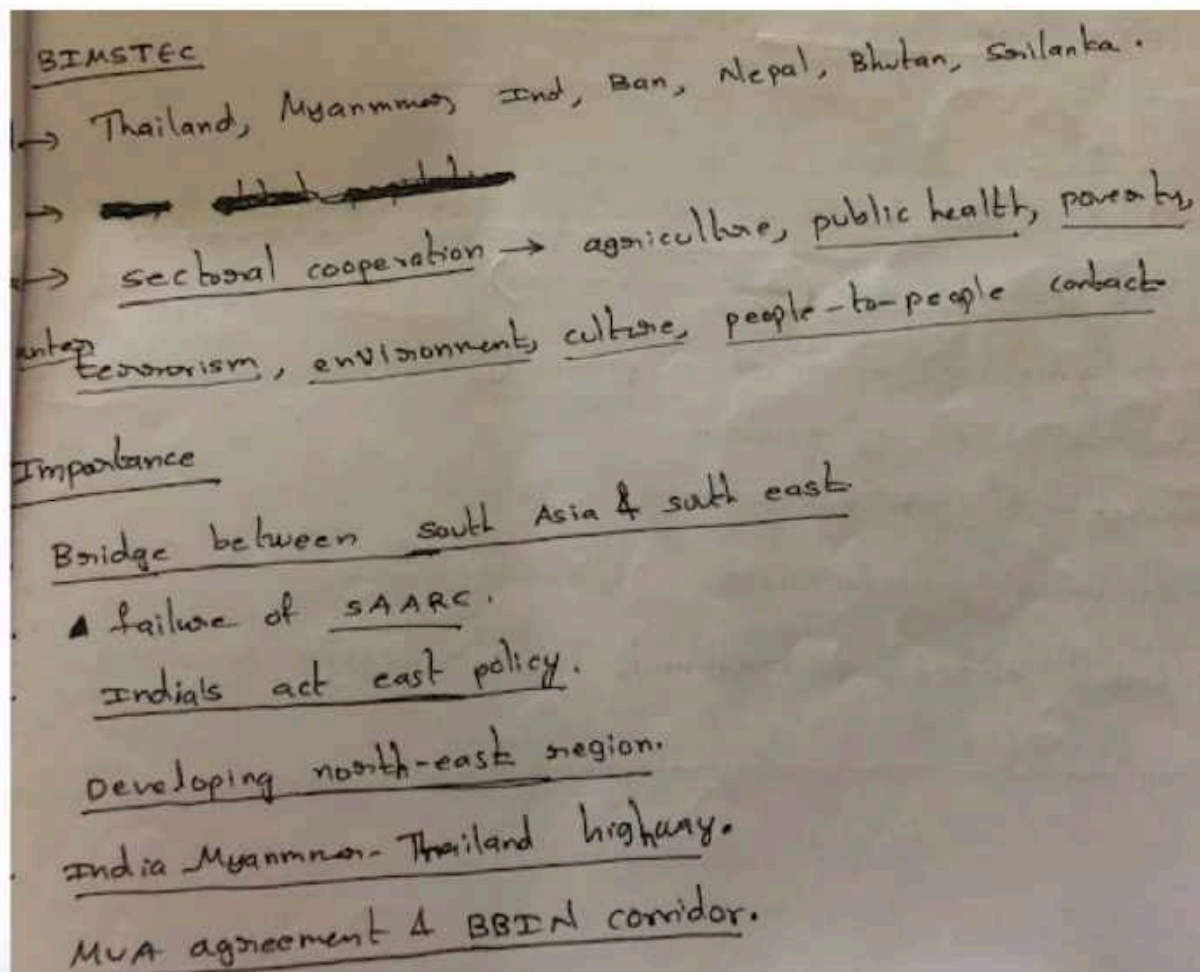 BIMSTEC
→ Thailand, Myanmmar, Ind, Ban, Nepal, Bhutan, Srilanka.
→
→ sectoral cooperation → agriculture, public health, poverty,
unter terrorism, environment, culture, people-to-people contact
Importance
Bridge between south Asia & south east
failure of SAARC.
India's act east policy.
Developing north-east region.
India Myanmmar-Thailand highway.
MVA agreement & BBIN corridor.